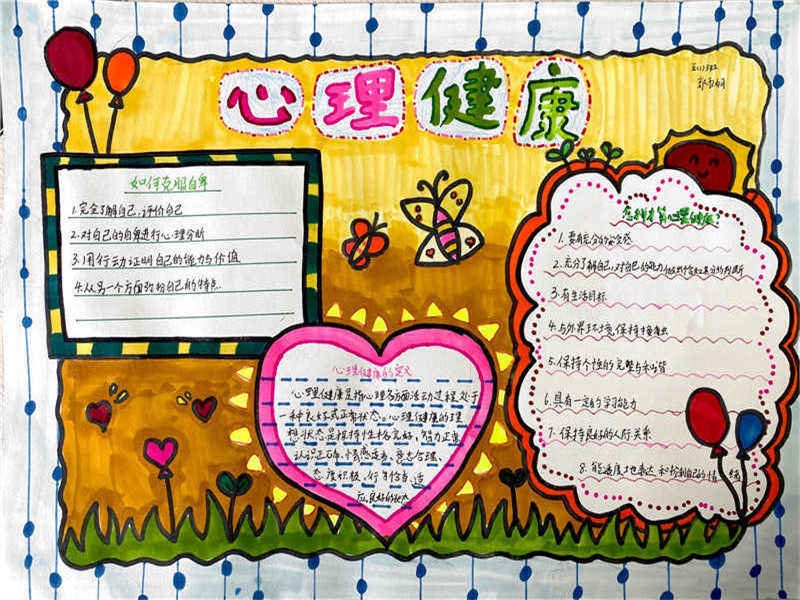 心理健康
如何克服自卑
1.完全了解自己.评价自己
2.对自己的自卑进行心理分析
3.用行动证明自己的能力与价值
4.从另一个方面弥补自己的特点
心理健康的定义
心理健康是指心理各方面活动过程处于
一种良好或正常状态。心理健康的理
想状态是保持性格完好、智力正常
认识正确、情感适当、意志合理、
态度积极、行为恰当、适
应良好的状态
怎样才算心理健康?
1.要有充分的安全感
2.充分了解自己,对自己的能力做出恰如其分的判断
3.有生活目标
4.与外界环境保持接触
5.保持个性的完整与和谐
6.具有一定的学习能力
7.保持良好的人际关系
8.能适度地表达和控制自己的情绪